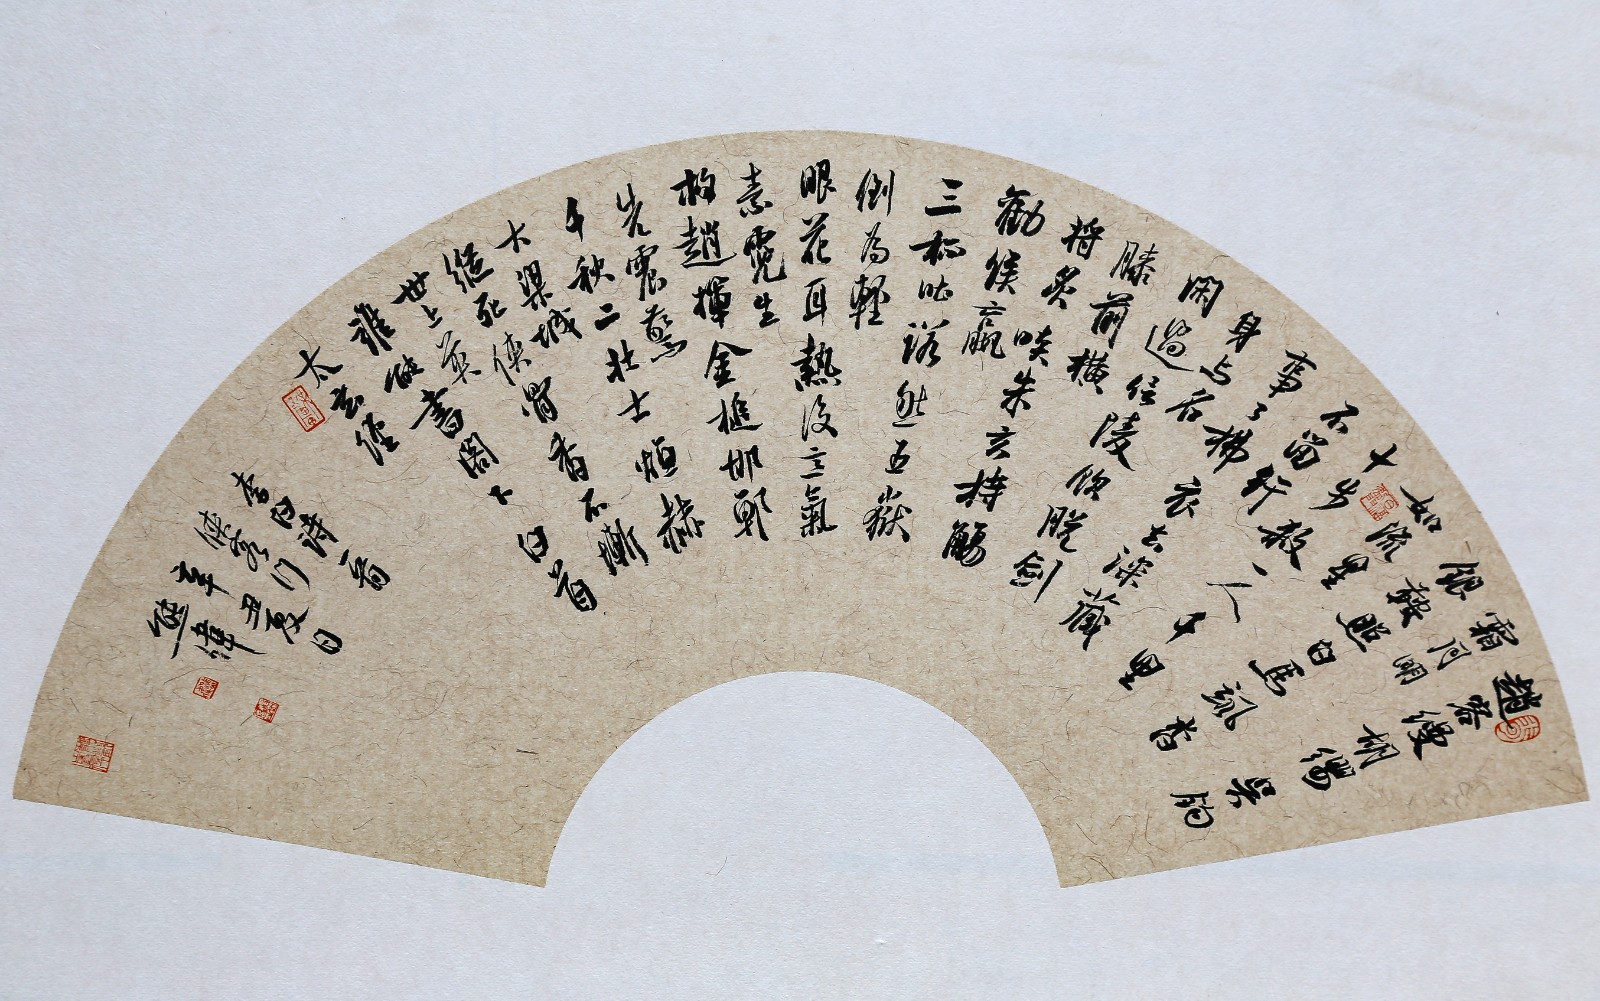 趙客縵胡纓吳鉤
霜明
銀鞍照白馬颯沓
如流星
十步殺一人千里
不留行
事了拂衣去深藏
身与名
閑過信陵飲脫劍
膝前橫
將炙啖朱亥持觴
勸侯嬴
三杯吐諾然五嶽
倒為輕
眼花耳熱後意氣
素霓生
救趙揮金槌邯鄲
先震驚
千秋二壯士烜赫
大梁城
縱死俠骨香不慚
世上英
誰能書閣下白首
太玄經
李白詩一首
俠客行
辛丑夏日